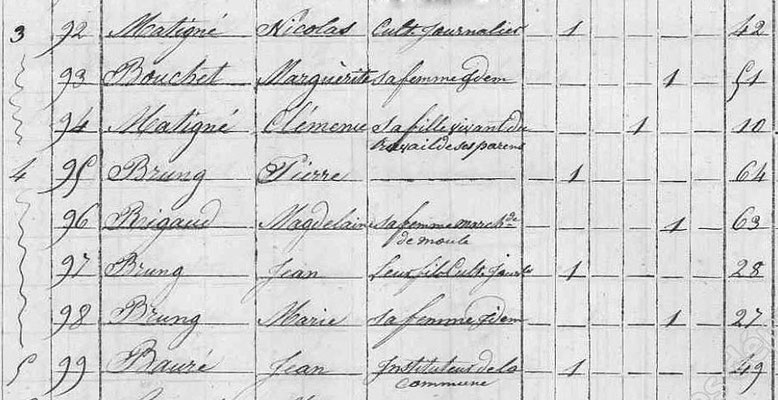 3 92 Matigné Nicolas Cult. Journalier 1 42
93 Bouchet Marguèrite sa femme idem 1 51
94 Matigné Clémence sa fille vivant du 1 10
travail de ses parens
4 95 Brung Pierre 1 64
96 Rigaud Magdelaine sa femme march.de 1 63
de moule
97 Brung Jean Leur fils Cult. Jour 1 28
98 Brung Marie sa femme idem 1 27
5 99 Bauré Jean Instituteur de la 1 49
commune